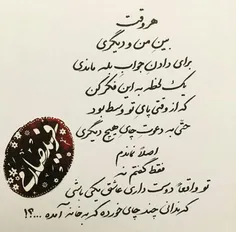 هر وقت
بین من و دیگری
برای دادن جواب بله ماندی
یک لحظه به این فکر کن
که از وقتی پای تو وسط بود
حتی به دعوت چای هیچ دیگری
اصلا نماندم
فقط گفتم نه
تو واقعا دوست داری عاشق یکی باشی
که نداند چند چای خورده که به خانه آمده ...؟!